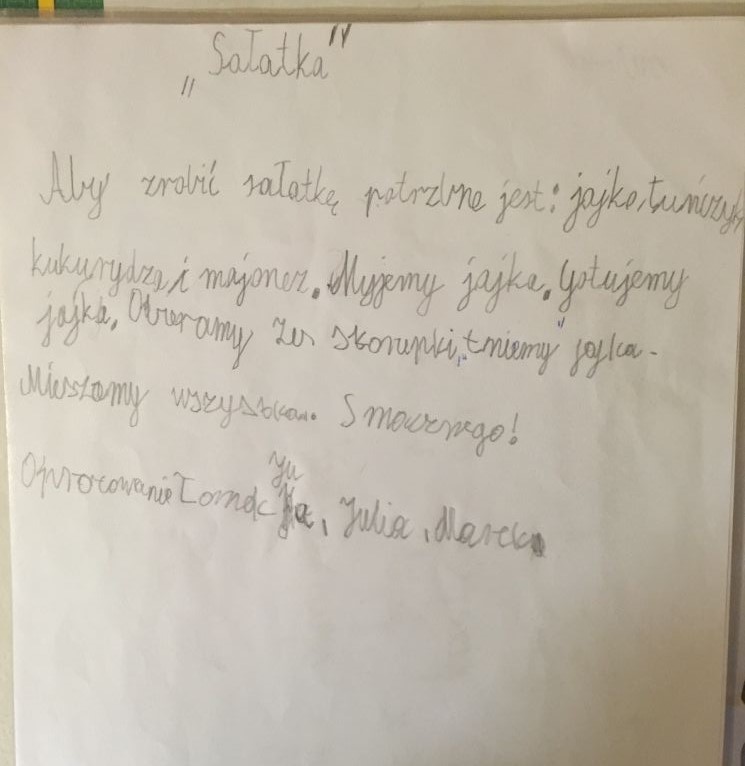 „Sałatka"
Aby zrobić sałatkę potrzbne jest: jajko, tuńczyk
kukurydza, i majonez. Myjemy jajka. Gotujemy
jajka. Obieramy ze skorupki, tniemy jajka.
Mieszamy wszystko. Smacznego!
Opracowanie Tomek, Julia, Marek